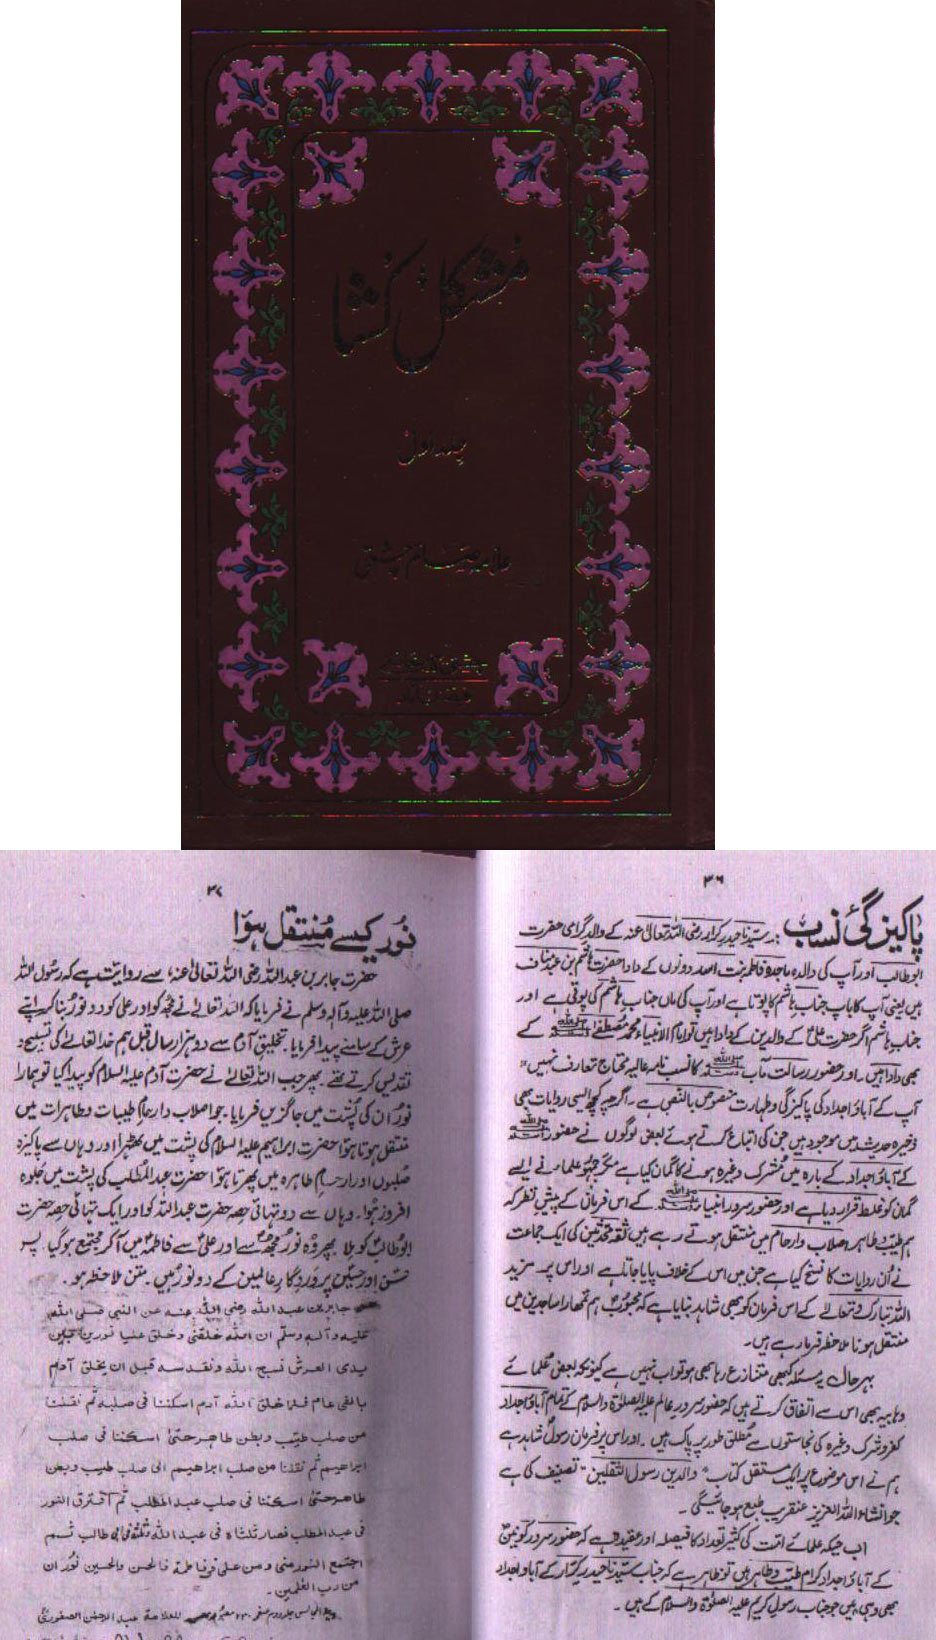 مشکل کشا
جلد اول
علامہ صائم چشتی
۳۶
پاکیزگیٔ نسب :۔ سیدنا حیدر کرار رضی اللہ تعالیٰ عنہ کے والد گرامی حضرت
ابو طالب اور آپ کی والدہ ماجدہ فاطمہ بنت اسد دونوں کے دادا حضرت ہاشم بن عبد مناف
ہیں یعنی آپ کا باپ جناب ہاشم کا پوتا ہے اور آپ کی ماں جناب ہاشم کی پوتی ہے اور
جناب ہاشم اگر حضرت علیؓ کے والدین کے دادا ہیں تو امام الانبیاء محمد مصطفےٰ ﷺ کے
بھی دادا ہیں ۔ اور حضور رسالت مآب ﷺ کا نسب نامہ عالیہ محتاج تعارف نہیں ۔
آپ کے آباؤ اجداد کی پاکیزگی و طہارت منصوص بالنص ہے ۔ اگرچہ کچھ ایسی روایات بھی
ذخیرہ حدیث میں موجود ہیں جن کی اتباع کرتے ہوئے بعض لوگوں نے حضور ﷺ
کے آباؤ اجداد کے بارہ میں مشرک وغیرہ ہونے کا گمان کیا ہے مگر جمہور علماء نے ایسے
گمان کو غلط قرار دیا ہے اور حضور سرور انبیاء ﷺ کے اس فرمان کے پیش نظر کہ
ہم طیب و طاہر اصلاب و ارحام میں منتقل ہوتے رہے ہیں ثقہ محدثین کی ایک جماعت
نے اُن روایات کا نسخ کیا ہے جن میں اس کے خلاف پایا جاتا ہے اور اس پر مزید
اللہ تبارک و تعالےٰ کے اس فرمان کو بھی شاہد بنایا ہے کہ محبوبؐ ہم تمہارا ساجدین میں
منتقل ہونا ملاحظہ فرما رہے ہیں ۔
بہرحال یہ مسئلہ کبھی متنازع رہا بھی ہو تو اب نہیں ہے کیونکہ بعض علمائے
وہابیہ بھی اس سے اتفاق کرتے ہیں کہ حضور سرور عالم علیہ الصلوٰۃ والسلام کے تمام آباؤ اجداد
کفر و شرک وغیرہ کی نجاستوں سے مطلق طور پر پاک ہیں ۔ اور اس پر فرمان رسول شاہد ہے
ہم نے اس موضوع پر ایک مستقل کتاب " والدین رسول الثقلین " تصنیف کی ہے
جو انشاء اللہ العزیز عنقریب طبع ہو جائیگی ۔
اب جبکہ علمائے امت کی کثیر تعداد کا فیصلہ اور عقیدہ ہے کہ حضور سرور کونین
کے آباؤ اجداد کرام طیب و طاہر ہیں تو ظاہر ہے کہ جناب سیدنا حیدر کرار کے آباؤ اجداد
بھی وہی ہیں جو جناب رسول کریم علیہ الصلوٰۃ والسلام کے ہیں ۔
۳۷
نور کیسے منتقل ہوا
حضرت جابر بن عبد اللہ رضی اللہ تعالیٰ عنہ، سے روایت ہے کہ رسول اللہ
صلی اللہ علیہ وآلہ وسلم نے فرمایا کہ اللہ تعالےٰ نے مجھ کو اور علی کو دو نور بنا کر اپنے
عرش کے سامنے پیدا فرمایا ۔ تخلیق آدم سے دو ہزار سال قبل ہم خدا تعالےٰ کی تسبیح و
تقدیس کرتے تھے ۔ پھر جب اللہ تعالےٰ نے حضرت آدم علیہ السلام کو پیدا کیا تو ہمارا
نور اُن کی پُشت میں جاگزیں فرمایا ۔ جو اصلاب و ارحامِ طیبات و طاہرات میں
منتقل ہوتا ہوا حضرت ابراہیم علیہ السلام کی پشت میں ٹھہرا اور وہاں سے پاکیزہ
صلبوں اور ارحام طاہرہ میں پھرتا ہوا حضرت عبد المطلب کی پشت میں جلوہ
افروز ہوا ۔ وہاں سے دو تہائی حصہ حضرت عبد اللہ کو اور ایک تہائی حصہ حضرت
ابو طالبؓ کو ملا پھر وہ نور مجھ سے اور علیؓ سے فاطمہؓ میں آکر مجتمع ہو گیا پس
حسن اور حسین پروردگارِ عالمین کے دو نور ہیں ۔ متن ملاحظہ ہو ۔
جابر بن عبد اللہ رضی اللہ عنہ عن النبی صلی اللہ
علیہ وآلہ وسلم ان اللہ خلقنی وخلق علیا نورین بین
یدی العرش نسبح اللہ ونقدسہ قبل ان یخلق آدم
بالفی عام فلما خلق اللہ آدم اسکننا فی صلبہ ثم نقلنا
من صلب طیب وبطن طاہر حتیٰ اسکننا فی صلب
ابراھیم ثم نقلنا من صلب ابراھیم الی صلب طیب وبطن
طاہر حتیٰ اسکننا فی صلب عبد المطلب ثم افترق النور
فی عبد المطلب فصار ثلثاہ فی عبد اللہ وثلثہ فی ابی طالب ثم
اجتمع النور منی ومن علی فی فاطمۃ فالحسن والحسین نور ان
من رب العلمین ۔
جلد دوم صفحہ ۲۳۰ للعلامۃ عبد الرحمٰن الصفوریؒ